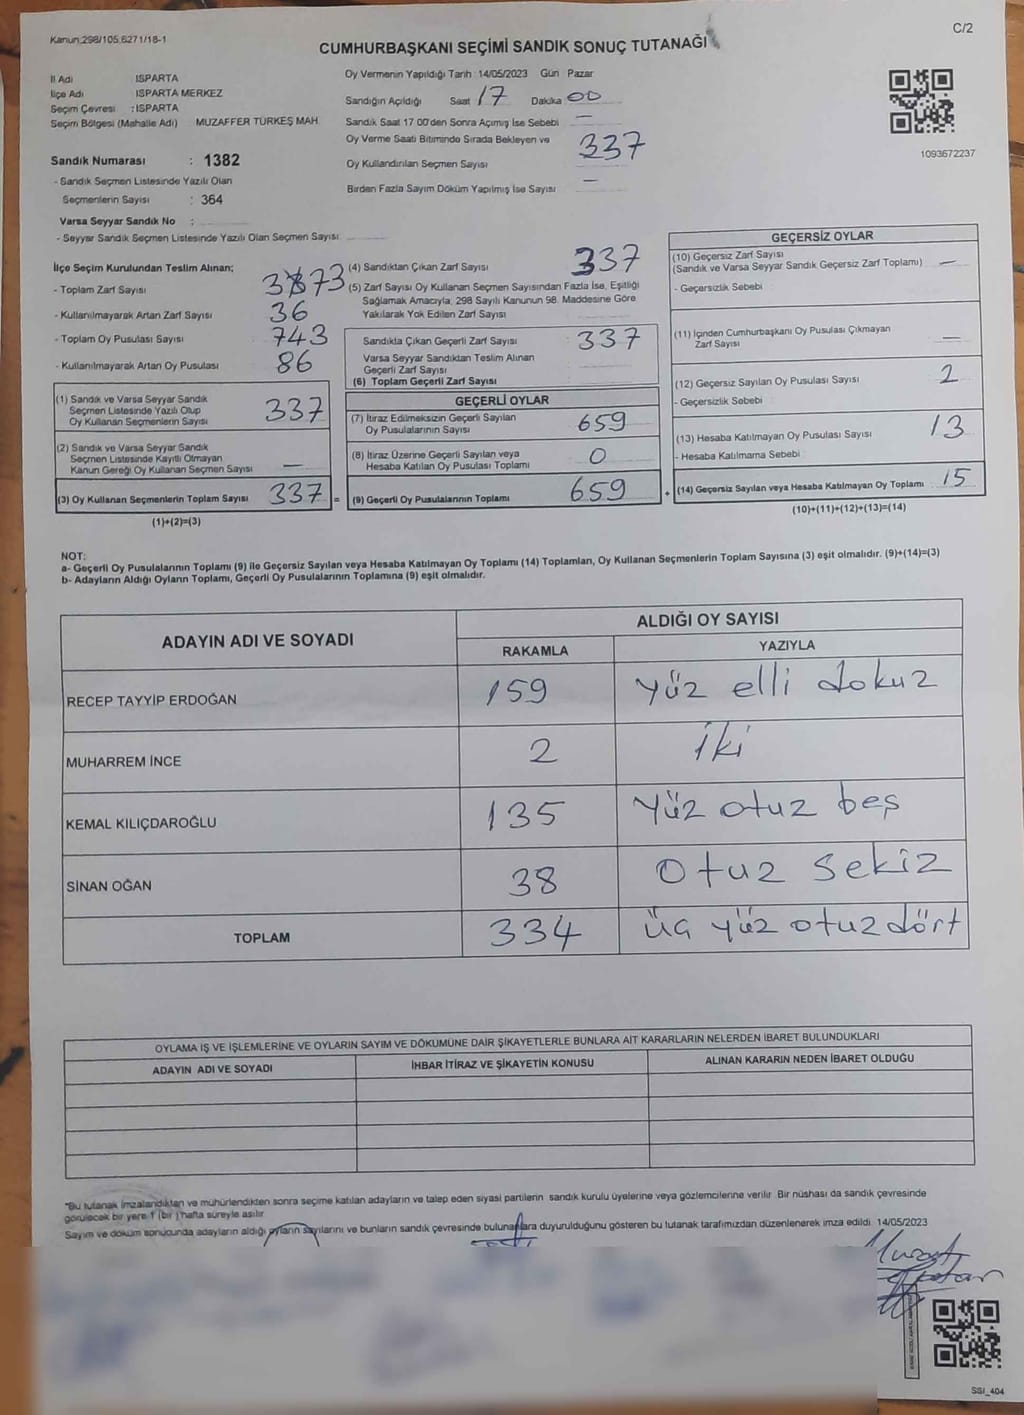 Kanun:298/105,6271/18-1
C/2
CUMHURBAŞKANI SEÇİMİ SANDIK SONUÇ TUTANAĞI
İl Adı ISPARTA
İlçe Adı ISPARTA MERKEZ
Seçim Çevresi : ISPARTA
Seçim Bölgesi (Mahalle Adı) MUZAFFER TÜRKEŞ MAH.
Sandık Numarası : 1382
- Sandık Seçmen Listesinde Yazılı Olan
Seçmenlerin Sayısı : 364
Varsa Seyyar Sandık No :
- Seyyar Sandık Seçmen Listesinde Yazılı Olan Seçmen Sayısı
Oy Vermenin Yapıldığı Tarih : 14/05/2023 Gün Pazar
Sandığın Açıldığı Saat 17 Dakika 00
Sandık Saat 17:00'den Sonra Açımış İse Sebebi —
Oy Verme Saati Bitiminde Sırada Bekleyen ve
Oy Kullandırılan Seçmen Sayısı 337
Birden Fazla Sayım Döküm Yapılmış İse Sayısı —
1093672237
İlçe Seçim Kurulundan Teslim Alınan;
- Toplam Zarf Sayısı 373
- Kullanılmayarak Artan Zarf Sayısı 36
- Toplam Oy Pusulası Sayısı 743
- Kullanılmayarak Artan Oy Pusulası 86
(1) Sandık ve Varsa Seyyar Sandık
Seçmen Listesinde Yazılı Olup
Oy Kullanan Seçmenlerin Sayısı 337
(2) Sandık ve Varsa Seyyar Sandık
Seçmen Listesinde Kayıtlı Olmayan
Kanun Gereği Oy Kullanan Seçmen Sayısı —
(3) Oy Kullanan Seçmenlerin Toplam Sayısı 337 =
(1)+(2)=(3)
(4) Sandıktan Çıkan Zarf Sayısı 337
(5) Zarf Sayısı Oy Kullanan Seçmen Sayısından Fazla İse, Eşitliği
Sağlamak Amacıyla, 298 Sayılı Kanunun 98. Maddesine Göre
Yakılarak Yok Edilen Zarf Sayısı
Sandıkla Çıkan Geçerli Zarf Sayısı : 337
Varsa Seyyar Sandıktan Teslim Alınan
Geçerli Zarf Sayısı
(6) Toplam Geçerli Zarf Sayısı
GEÇERLİ OYLAR
(7) İtiraz Edilmeksizin Geçerli Sayılan
Oy Pusulalarının Sayısı 659
(8) İtiraz Üzerine Geçerli Sayılan veya
Hesaba Katılan Oy Pusulası Toplamı 0
(9) Geçerli Oy Pusulalarının Toplamı 659 +
GEÇERSİZ OYLAR
(10) Geçersiz Zarf Sayısı
(Sandık ve Varsa Seyyar Sandık Geçersiz Zarf Toplamı) —
- Geçersizlik Sebebi
(11) İçinden Cumhurbaşkanı Oy Pusulası Çıkmayan
Zarf Sayısı —
(12) Geçersiz Sayılan Oy Pusulası Sayısı 2
- Geçersizlik Sebebi
(13) Hesaba Katılmayan Oy Pusulası Sayısı 13
- Hesaba Katılmama Sebebi
(14) Geçersiz Sayılan veya Hesaba Katılmayan Oy Toplamı : 15
(10)+(11)+(12)+(13)=(14)
NOT:
a- Geçerli Oy Pusulalarının Toplamı (9) ile Geçersiz Sayılan veya Hesaba Katılmayan Oy Toplamı (14) Toplamları, Oy Kullanan Seçmenlerin Toplam Sayısına (3) eşit olmalıdır. (9)+(14)=(3)
b- Adayların Aldığı Oyların Toplamı, Geçerli Oy Pusulalarının Toplamına (9) eşit olmalıdır.
ADAYIN ADI VE SOYADI
ALDIĞI OY SAYISI
RAKAMLA YAZIYLA
RECEP TAYYİP ERDOĞAN 159 Yüz elli dokuz
MUHARREM İNCE 2 İki
KEMAL KILIÇDAROĞLU 135 Yüz otuz beş
SİNAN OĞAN 38 Otuz sekiz
TOPLAM 334 üç yüz otuz dört
OYLAMA İŞ VE İŞLEMLERİNE VE OYLARIN SAYIM VE DÖKÜMÜNE DAİR ŞİKAYETLERLE BUNLARA AİT KARARLARIN NELERDEN İBARET BULUNDUKLARI
ADAYIN ADI VE SOYADI İHBAR İTİRAZ VE ŞİKAYETİN KONUSU ALINAN KARARIN NEDEN İBARET OLDUĞU
"Bu tutanak imzalandıktan ve mühürlendikten sonra seçime katılan adayların ve talep eden siyasi partilerin sandık kurulu üyelerine veya gözlemcilerine verilir. Bir nüshası da sandık çevresinde
görülecek bir yere 1 (bir) hafta süreyle asılır.
Sayım ve döküm sonucunda adayların aldığı oyların sayılarını ve bunların sandık çevresinde bulunanlara duyurulduğunu gösteren bu tutanak tarafımızdan düzenlenerek imza edildi. 14/05/2023
SSI_404